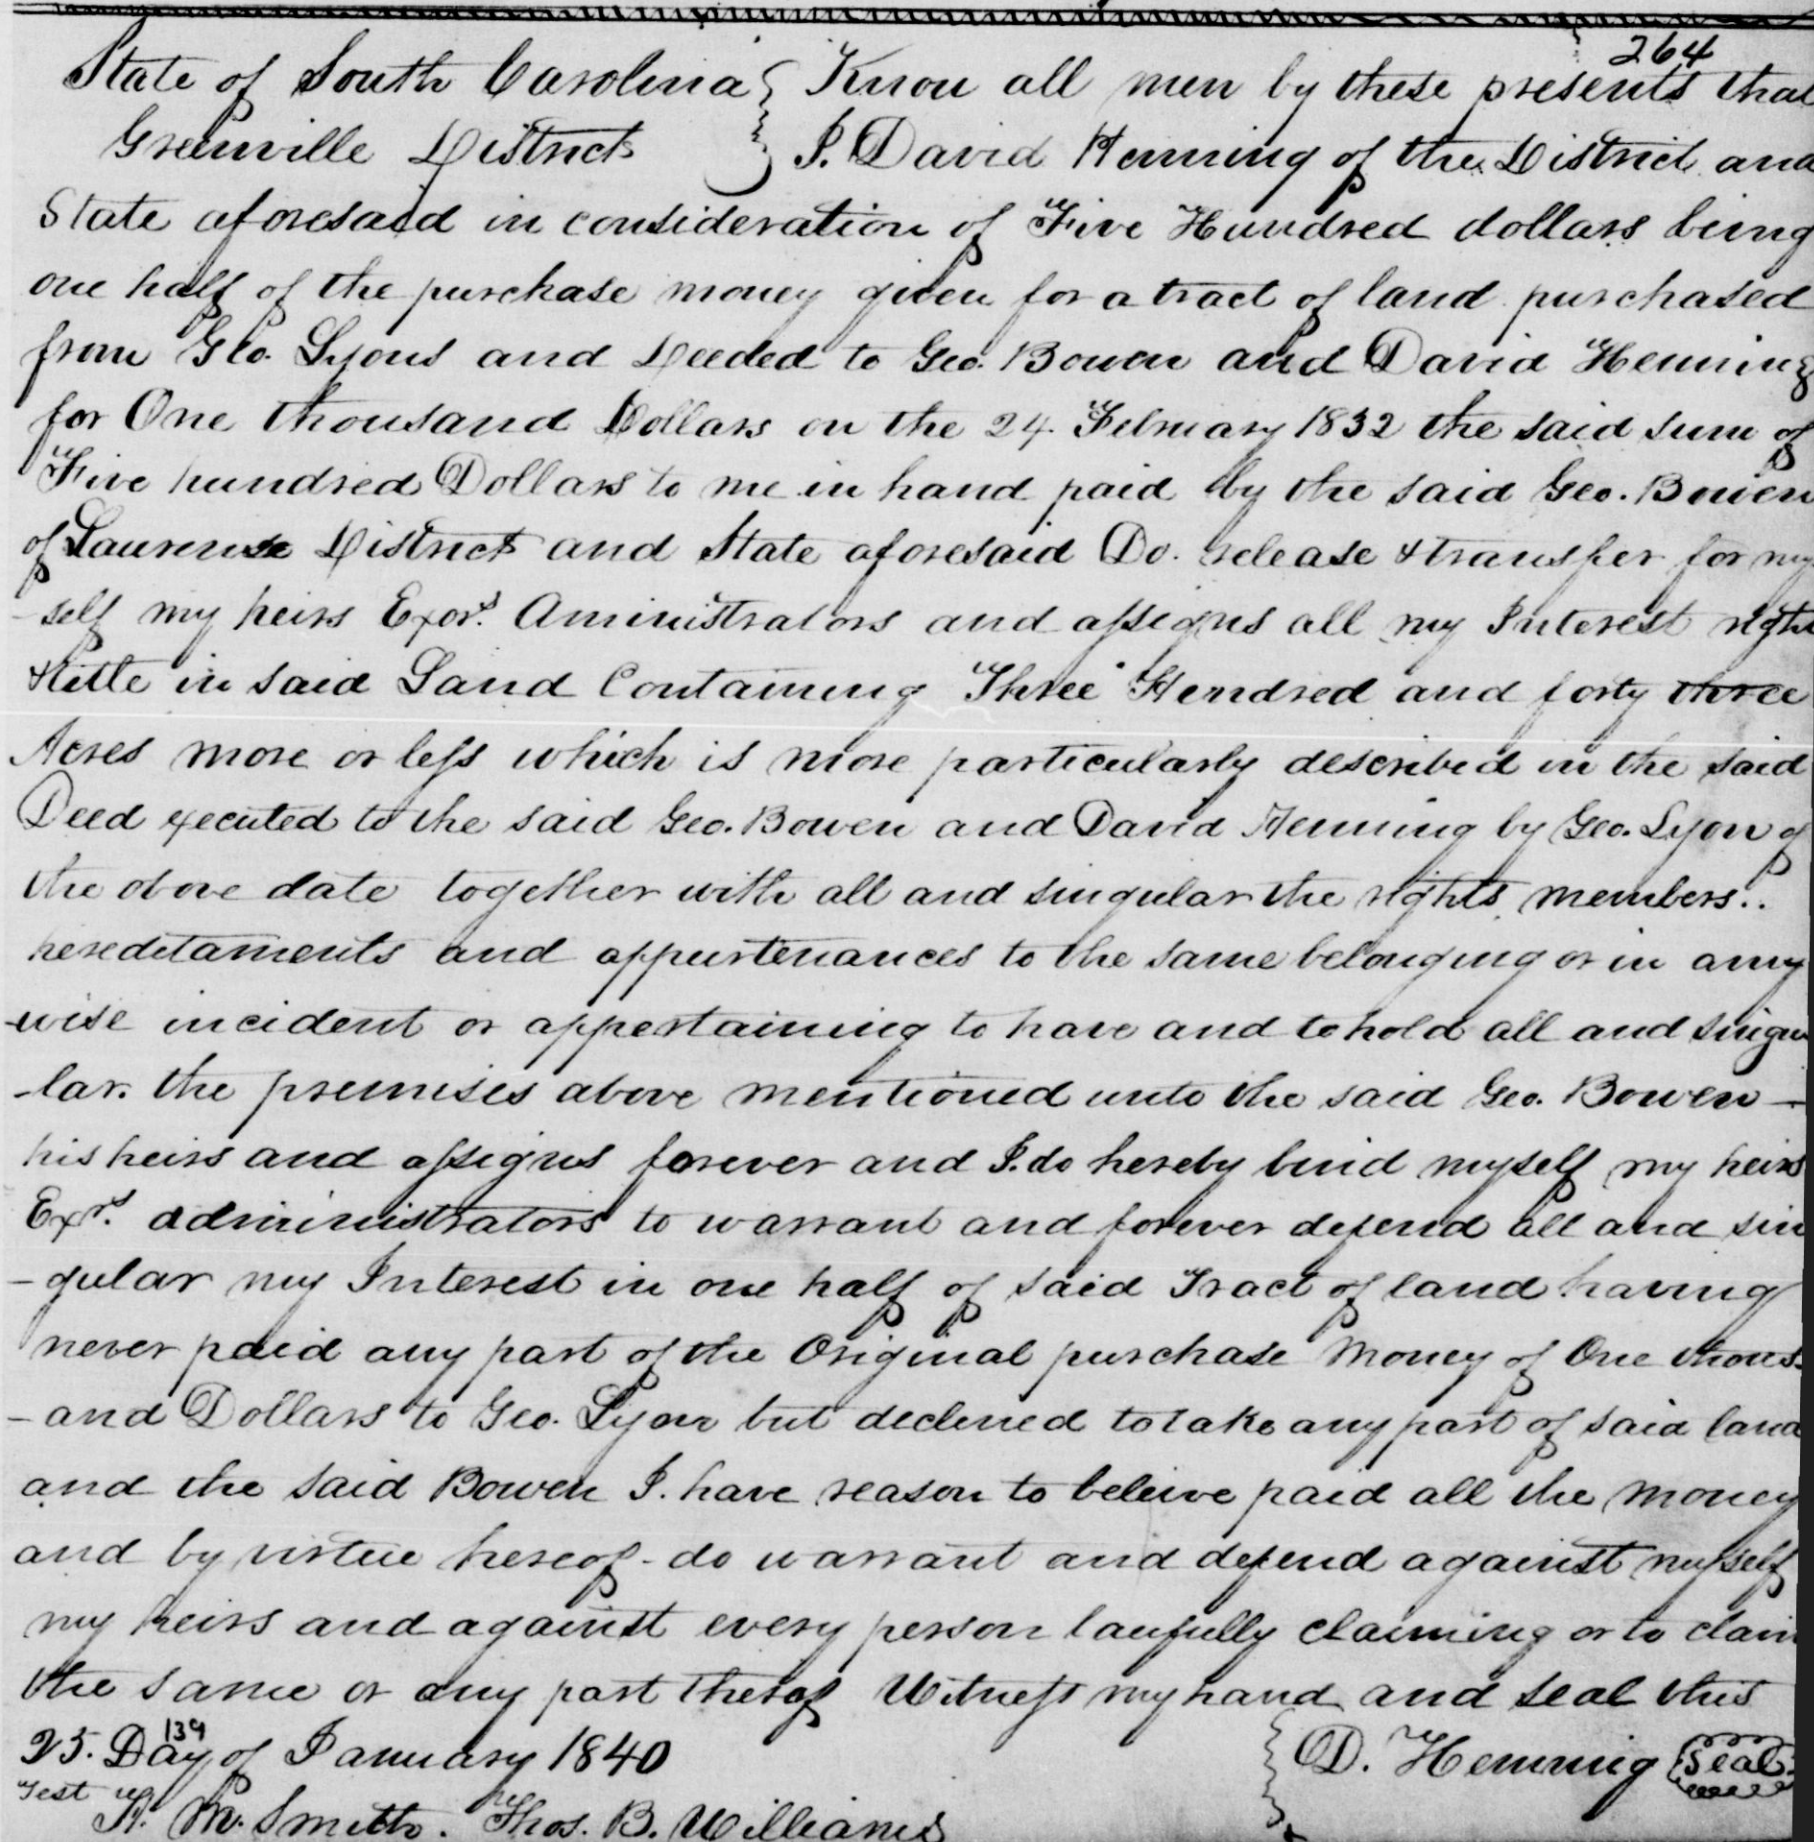 264
State of South Carolina } Know all men by these presents that
Greenville District } I. David Henning of the District and
State aforesaid in consideration of Five Hundred dollars being
one half of the purchase money given for a tract of land purchased
from Geo. Lyons and Deeded to Geo. Bowen and David Henning
for One thousand Dollars on the 24 February 1832 the said sum of
Five hundred Dollars to me in hand paid by the said Geo. Bowen
of Laurense District and State aforesaid Do. release & transfer for my
-self my heirs Exors. Aministrators and assigns all my Interest right
& title in said Land Containing Three Hundred and forty three
Acres more or less which is more particularly described in the said
Deed executed to the said Geo. Bowen and David Henning by Geo. Lyon of
the above date together with all and singular the rights members..
hereditaments and appurtenances to the same belonging or in any
-wise incident or appertaining to have and to hold all and singu
-lar. the premises above mentioned unto the said Geo. Bowen —
his heirs and assigns forever and I. do hereby bind myself my heirs
Exrs. administrators to warrant and forever defend all and sin
-gular my Interest in one half of said Tract of land having
never paid any part of the Original purchase Money of One thous
-and Dollars to Geo. Lyon but declined to take any part of said land
and the said Bowen I. have reason to beleive paid all the money
and by virtue hereof - do warrant and defend against myself
my heirs and against every person laufully claiming or to claim
the same or any part therof Witness my hand and seal this
139
25. Day of January 1840 } D. Henning Seal
Test M. Smith. Thos. B. Williams